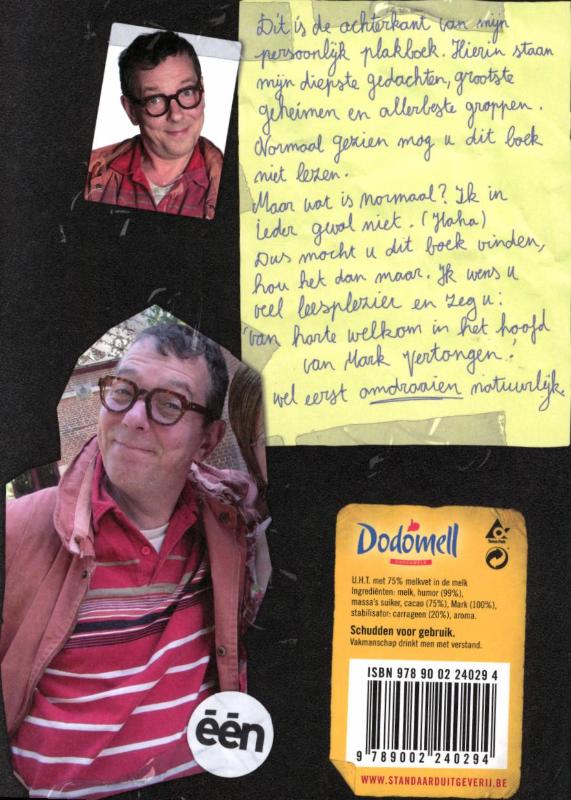 Dit is de achterkant van mijn
persoonlijk plakboek. Hierin staan
mijn diepste gedachten, grootste
geheimen en allerbeste grappen.
Normaal gezien mag u dit boek
niet lezen.
Maar wat is normaal? Ik in
ieder geval niet. (Haha)
Dus mocht u dit boek vinden,
hou het dan maar. Ik wens u
veel leesplezier en zeg u:
'van harte welkom in het hoofd
van Mark Vertongen.'
wel eerst omdraaien natuurlijk.
één
Dodomell
Tetra Pak
U.H.T. met 75% melkvet in de melk
Ingrediënten: melk, humor (99%),
massa's suiker, cacao (75%), Mark (100%),
stabilisator: carrageen (20%), aroma.
Schudden voor gebruik.
Vakmanschap drinkt men met verstand.
ISBN 978 90 02 24029 4
9 789002 240294
WWW.STANDAARDUITGEVERIJ.BE